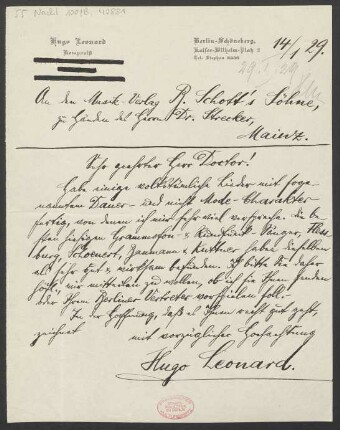 Hugo Leonard
Komponist
Berlin-Schöneberg,
Kaiser-Wilhelm-Platz 2
Tel. Stephan
14/1 29.
An den Musik-Verlag B. Schott's Söhne,
zu Händen des Herrn Dr. Strecker,
Mainz.
Sehr geehrter Herr Doctor!
Habe einige volkstümliche Lieder mit soge-
nannten Dauer- und nicht Mode-Charakter
fertig, von denen ich mir sehr viel verspreche. Die be-
sten hiesigen Grammofon- & Rundfunk-Sänger,
Schoenert, & Kuttner haben dieselben
als sehr gut & wirksam befunden. Ich bitte Sie daher
höfl. mir mitteilen zu wollen, ob ich sie Ihnen senden
oder Ihrem Berliner Vertreter vorspielen soll.
In der Hoffnung, daß es Ihnen recht gut geht,
zeichnet mit vorzüglicher Hochachtung
Hugo Leonard.